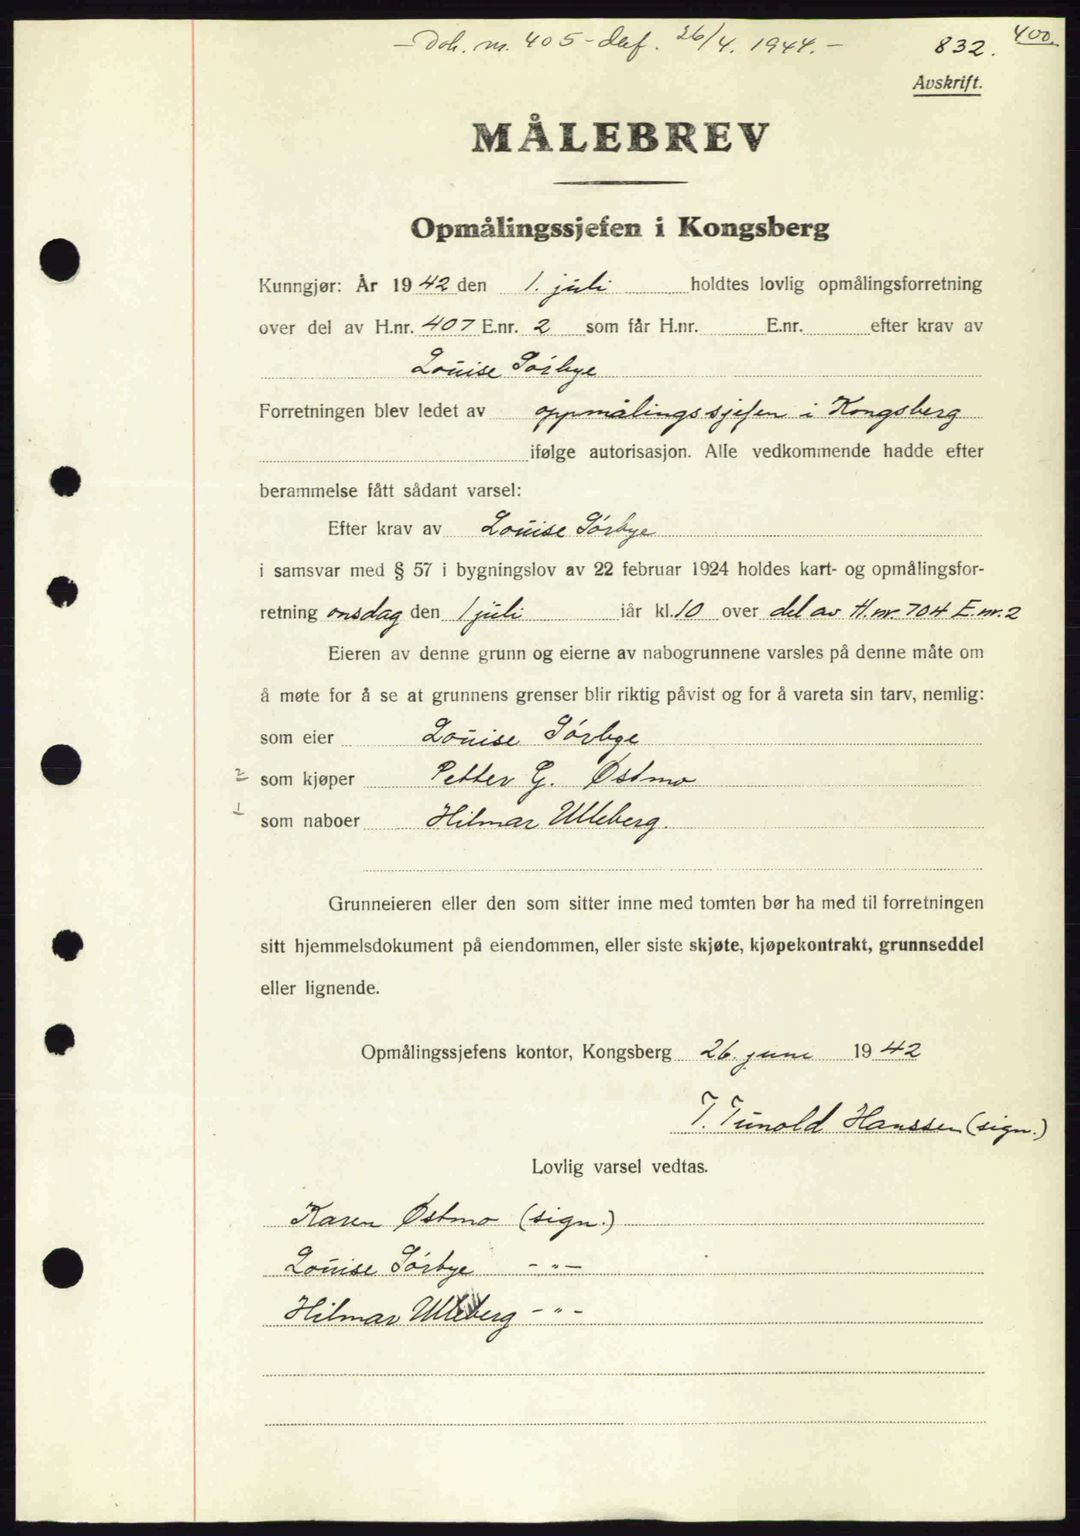 – Dok. nr. 405 – daf. 26/4. 1944. –
832.
400
Avskrift.
MÅLEBREV
Opmålingssjefen i Kongsberg
Kunngjør: År 1942 den 1. juli holdtes lovlig opmålingsforretning
over del av H.nr. 407 E.nr. 2 som får H.nr. E.nr. efter krav av
Louise Sørbye
Forretningen blev ledet av oppmålingssjefen i Kongsberg
ifølge autorisasjon. Alle vedkommende hadde efter
berammelse fått sådant varsel:
Efter krav av Louise Sørbye
i samsvar med § 57 i bygningslov av 22 februar 1924 holdes kart- og opmålingsfor-
retning onsdag den 1 juli iår kl. 10 over del av H.nr. 704 E.nr. 2
Eieren av denne grunn og eierne av nabogrunnene varsles på denne måte om
å møte for å se at grunnens grenser blir riktig påvist og for å vareta sin tarv, nemlig:
som eier Louise Sørbye
2 som kjøper Petter G. Østmo
1 som naboer Hilmar Ulleberg.
Grunneieren eller den som sitter inne med tomten bør ha med til forretningen
sitt hjemmelsdokument på eiendommen, eller siste skjøte, kjøpekontrakt, grunnseddel
eller lignende.
Opmålingssjefens kontor, Kongsberg 26. juni 1942
T. Tunold Hanssen (sign.)
Lovlig varsel vedtas.
Karen Østmo (sign.)
Louise Sørbye – " –
Hilmar Ulleberg – " –